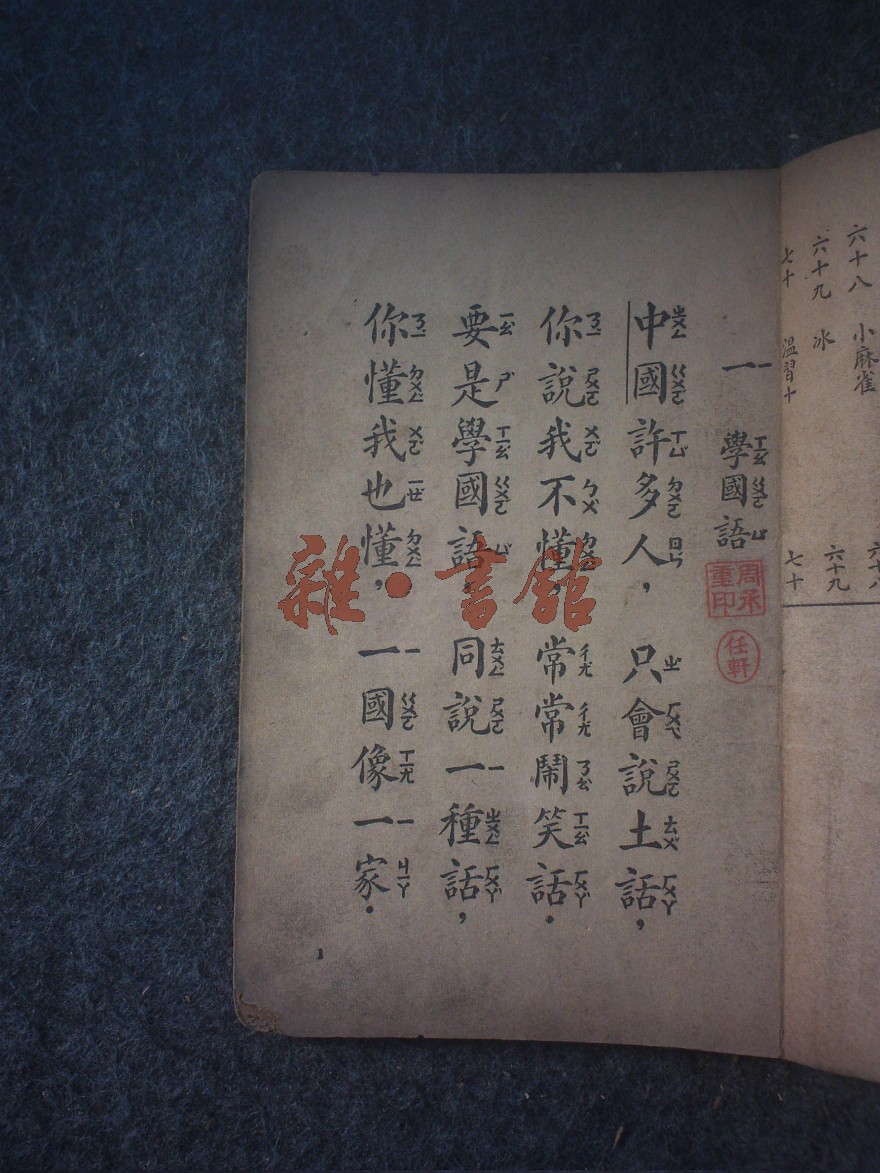 六十八 小麻雀 六十八
六十九 冰 六十九
七十 温習十 七十
一 學國語
任軒
中國許多人，只會說土話，
你說我不懂，常常鬧笑話．
要是學國語，同說一種話，
你懂我也懂，一國像一家．
1
雜·書館